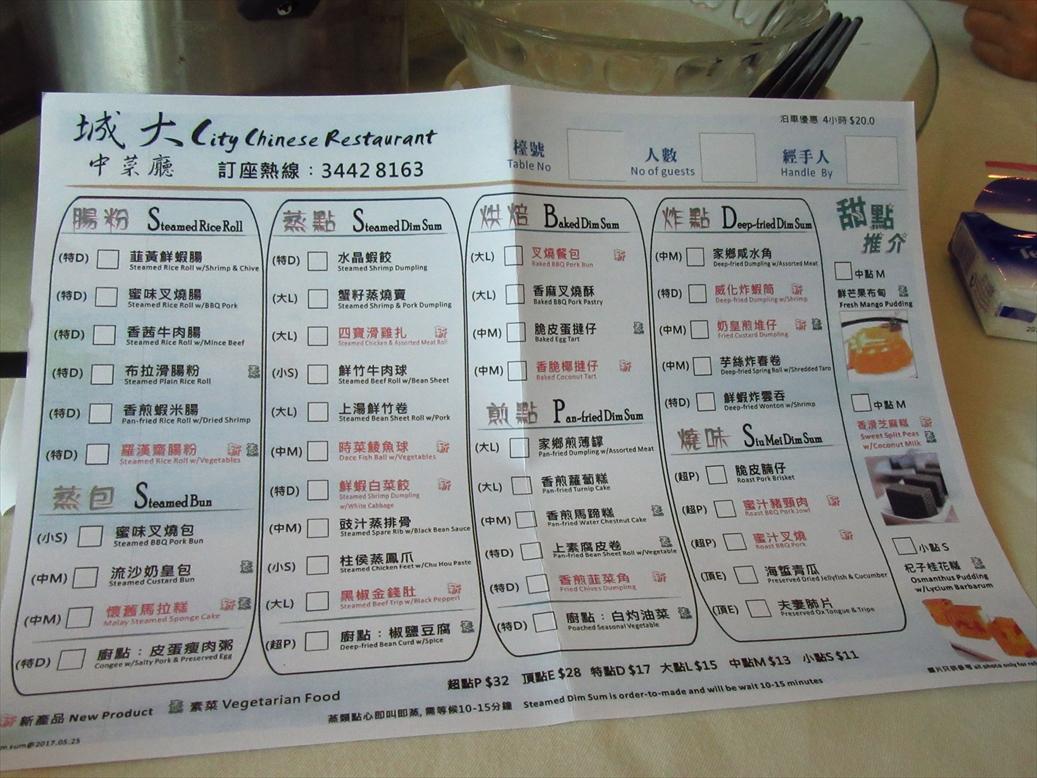 城大 City Chinese Restaurant
中菜廳 訂座熱線：3442 8163
泊車優惠 4小時 $20.0
檯號
Table No
人數
No of guests
經手人
Handle By
腸粉 Steamed Rice Roll
(特D) 韮黃鮮蝦腸
Steamed Rice Roll w/Shrimp & Chive
(特D) 蜜味叉燒腸
Steamed Rice Roll w/BBQ Pork
(特D) 香茜牛肉腸
Steamed Rice Roll w/Mince Beef
(特D) 布拉滑腸粉
Steamed Plain Rice Roll
(特D) 香煎蝦米腸
Pan-fried Rice Roll w/Dried Shrimp
(特D) 羅漢齋腸粉
Steamed Rice Roll w/Vegetables
蒸包 Steamed Bun
(小S) 蜜味叉燒包
Steamed BBQ Pork Bun
(中M) 流沙奶皇包
Steamed Custard Bun
(中M) 懷舊馬拉糕
Malay Steamed Sponge Cake
(特D) 廚點：皮蛋瘦肉粥
Congee w/Salty Pork & Preserved Egg
蒸點 Steamed Dim Sum
(特D) 水晶蝦餃
Steamed Shrimp Dumpling
(大L) 蟹籽蒸燒賣
Steamed Shrimp & Pork Dumpling
(大L) 四寶滑雞扎
Steamed Chicken & Assorted Meat Roll
(小S) 鮮竹牛肉球
Steamed Beef Roll w/Bean Sheet
(大L) 上湯鮮竹卷
Steamed Bean Sheet Roll w/Pork
(中M) 時菜鯪魚球
Dace Fish Ball w/Vegetables
(特D) 鮮蝦白菜餃
Steamed Shrimp Dumpling
w/White Cabbage
(中M) 豉汁蒸排骨
Steamed Spare Rib w/Black Bean Sauce
(小S) 柱侯蒸鳳爪
Steamed Chicken Feet w/Chu Hou Paste
(大L) 黑椒金錢肚
Steamed Beef Trip w/Black Pepperl
(超P) 廚點：椒鹽豆腐
Deep-fried Bean Curd w/Spice
烘焙 Baked Dim Sum
(大L) 叉燒餐包
Baked BBQ Pork Bun
(大L) 香麻叉燒酥
Baked BBQ Pork Pastry
(中M) 脆皮蛋撻仔
Baked Egg Tart
(中M) 香脆椰撻仔
Baked Coconut Tart
煎點 Pan-fried Dim Sum
(大L) 家鄉煎薄罉
Pan-fried Dumpling w/Assorted Meat
(大L) 香煎蘿蔔糕
Pan-fried Turnip Cake
(中M) 香煎馬蹄糕
Pan-fried Water Chestnut Cake
(特D) 上素腐皮卷
Pan-fried Bean Sheet Roll w/Vegetable
(特D) 香煎韮菜角
Fried Chives Dumpling
(特D) 廚點：白灼油菜
Poached Seasonal Vegetable
炸點 Deep-fried Dim Sum
(中M) 家鄉咸水角
Deep-fried Dumpling w/Assorted Meat
(特D) 威化炸蝦筒
Deep-fried Dumpling w/Shrimp
(中M) 奶皇煎堆仔
Fried Custard Dumpling
(中M) 芋絲炸春卷
Deep-fried Spring Roll w/Shredded Taro
(特D) 鮮蝦炸雲吞
Deep-fried Wonton w/Shrimp
燒味 Siu Mei Dim Sum
(超P) 脆皮腩仔
Roast Pork Brisket
(超P) 蜜汁豬頸肉
Roast BBQ Pork Jowl
(超P) 蜜汁叉燒
Roast BBQ Pork
(頂E) 海蜇青瓜
Preserved Dried Jellyfish & Cucumber
(頂E) 夫妻肺片
Preserved Ox Tongue & Tripe
甜點
推介
中點 M
鮮芒果布甸
Fresh Mango Pudding
中點 M
香滑芝麻糕
Sweet Split Peas
w/Coconut Milk
小點 S
杞子桂花糕
Osmanthus Pudding
w/Lycium Barbarum
圖片只供參考 all photo only for ref
超點P $32 頂點E $28 特點D $17 大點L $15 中點M $13 小點S $11
新產品 New Product 素菜 Vegetarian Food
蒸類點心即叫即蒸, 需等候10-15分鐘 Steamed Dim Sum is order-to-made and will be wait 10-15 minutes
m.sum@2017.05.25